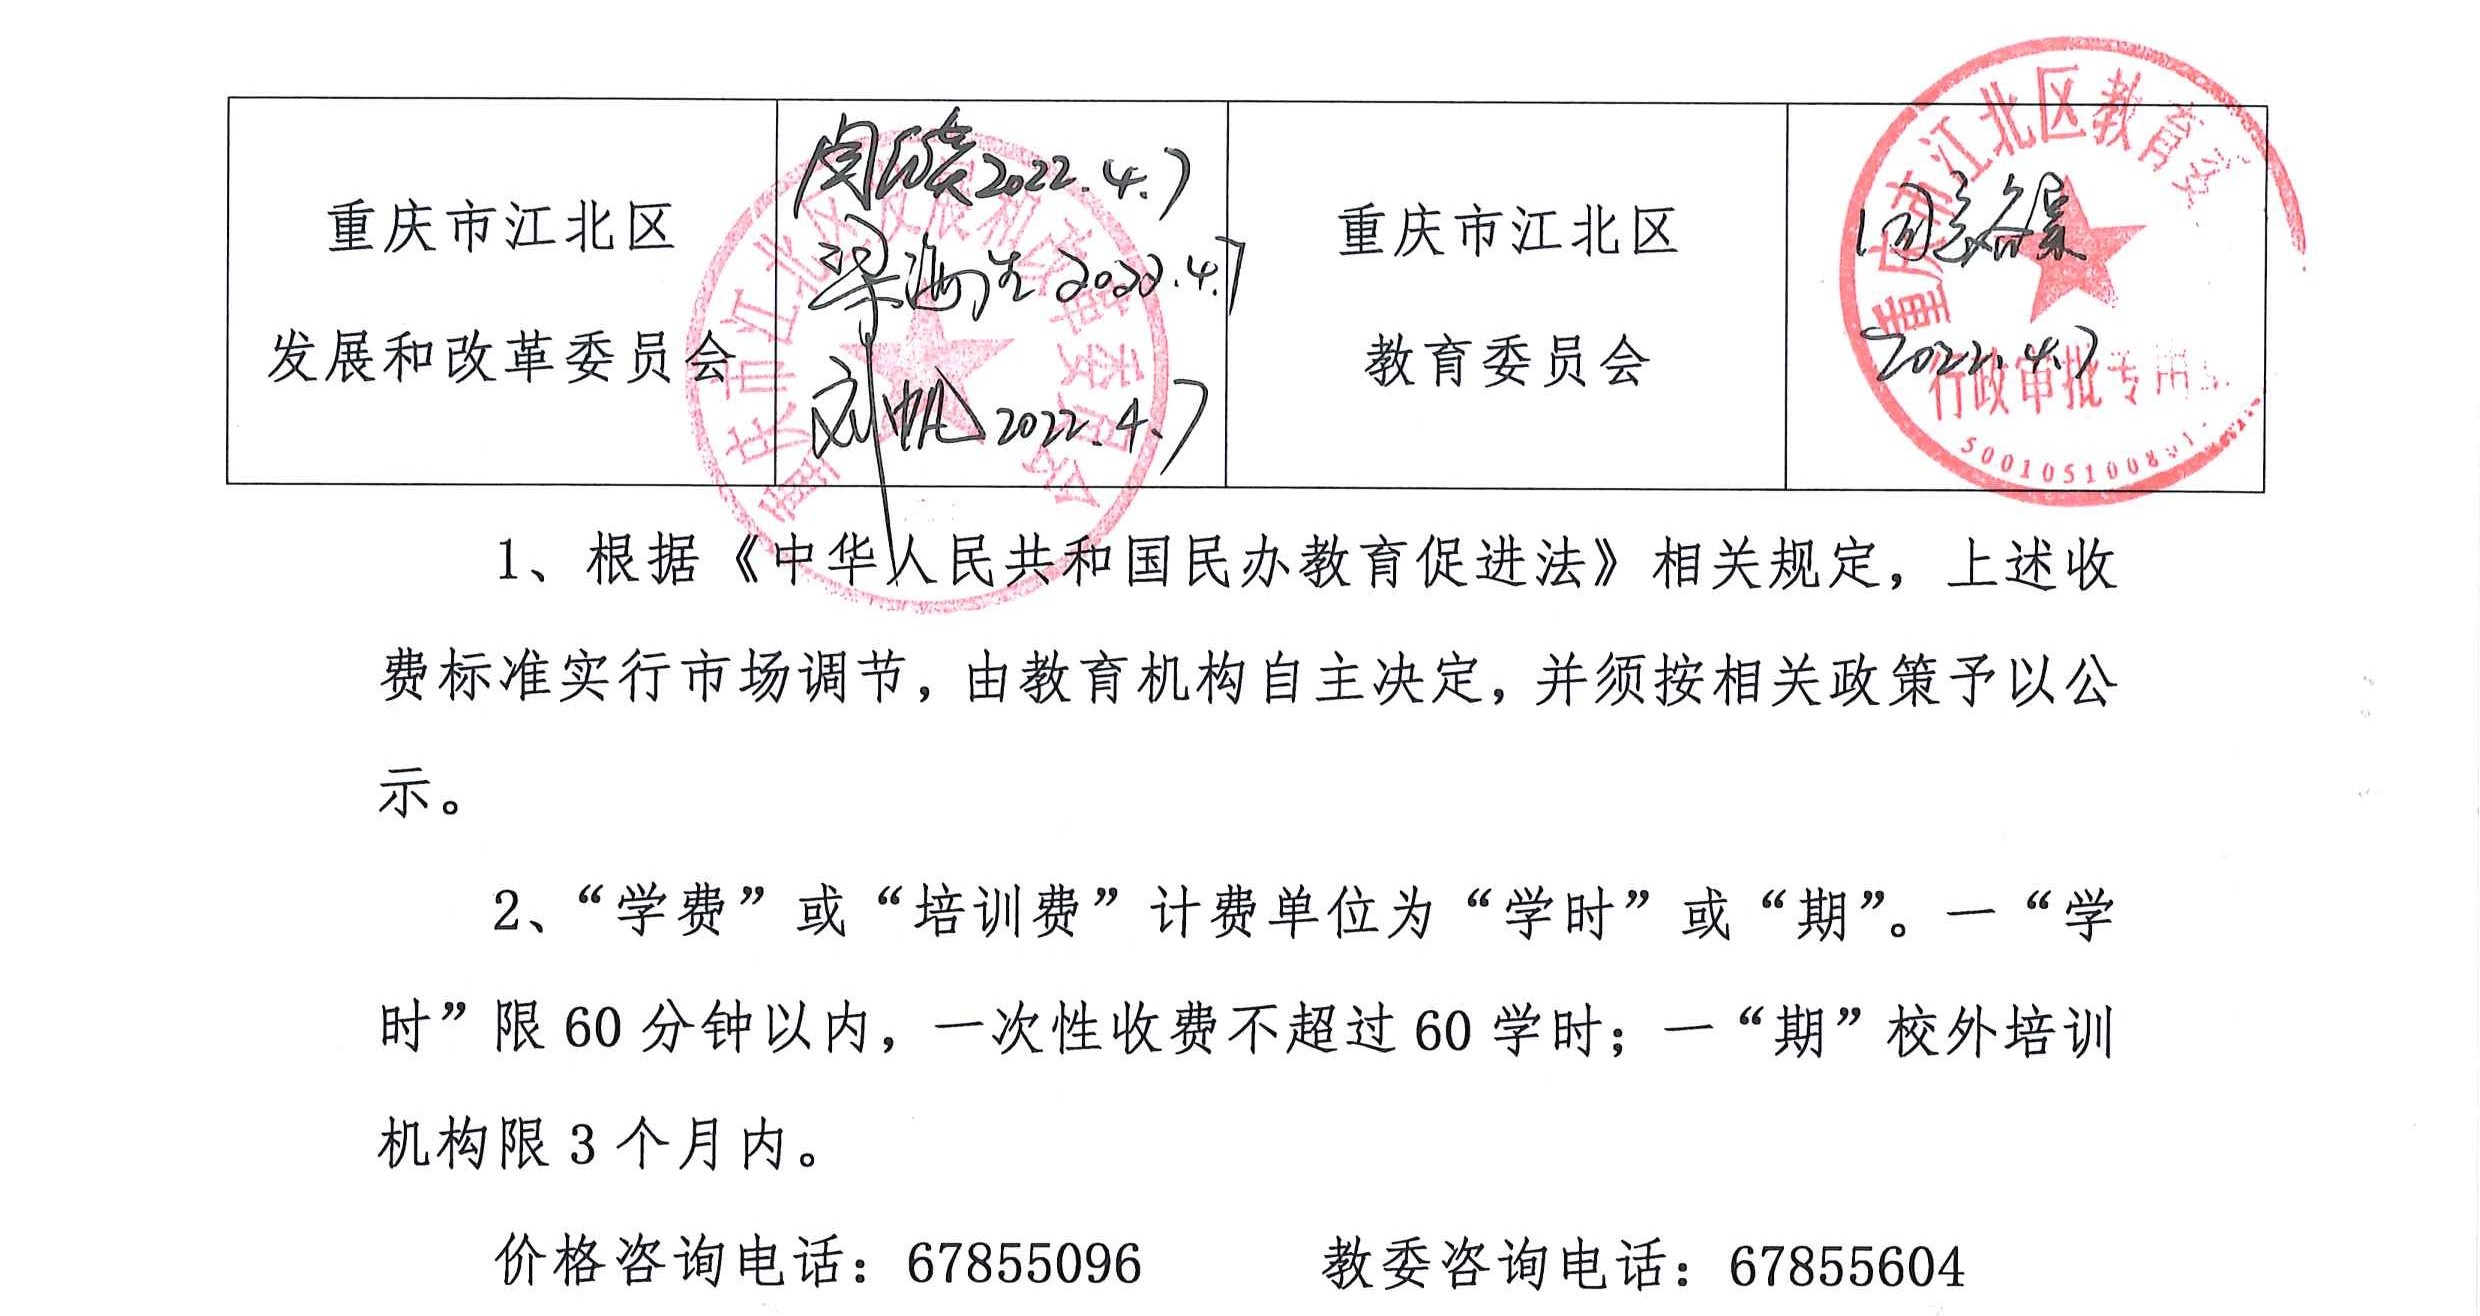 重庆市江北区
发展和改革委员会
2022.4.7
梁海生 2022.4.7
刘帆 2022.4.7
重庆市江北区发展和改革委员会
重庆市江北区
教育委员会
2022.4.7
重庆市江北区教育委
行政审批专用
1、根据《中华人民共和国民办教育促进法》相关规定，上述收
费标准实行市场调节，由教育机构自主决定，并须按相关政策予以公
示。
2、“学费”或“培训费”计费单位为“学时”或“期”。一“学
时”限 60 分钟以内，一次性收费不超过 60 学时；一“期”校外培训
机构限 3 个月内。
价格咨询电话：67855096 教委咨询电话：67855604